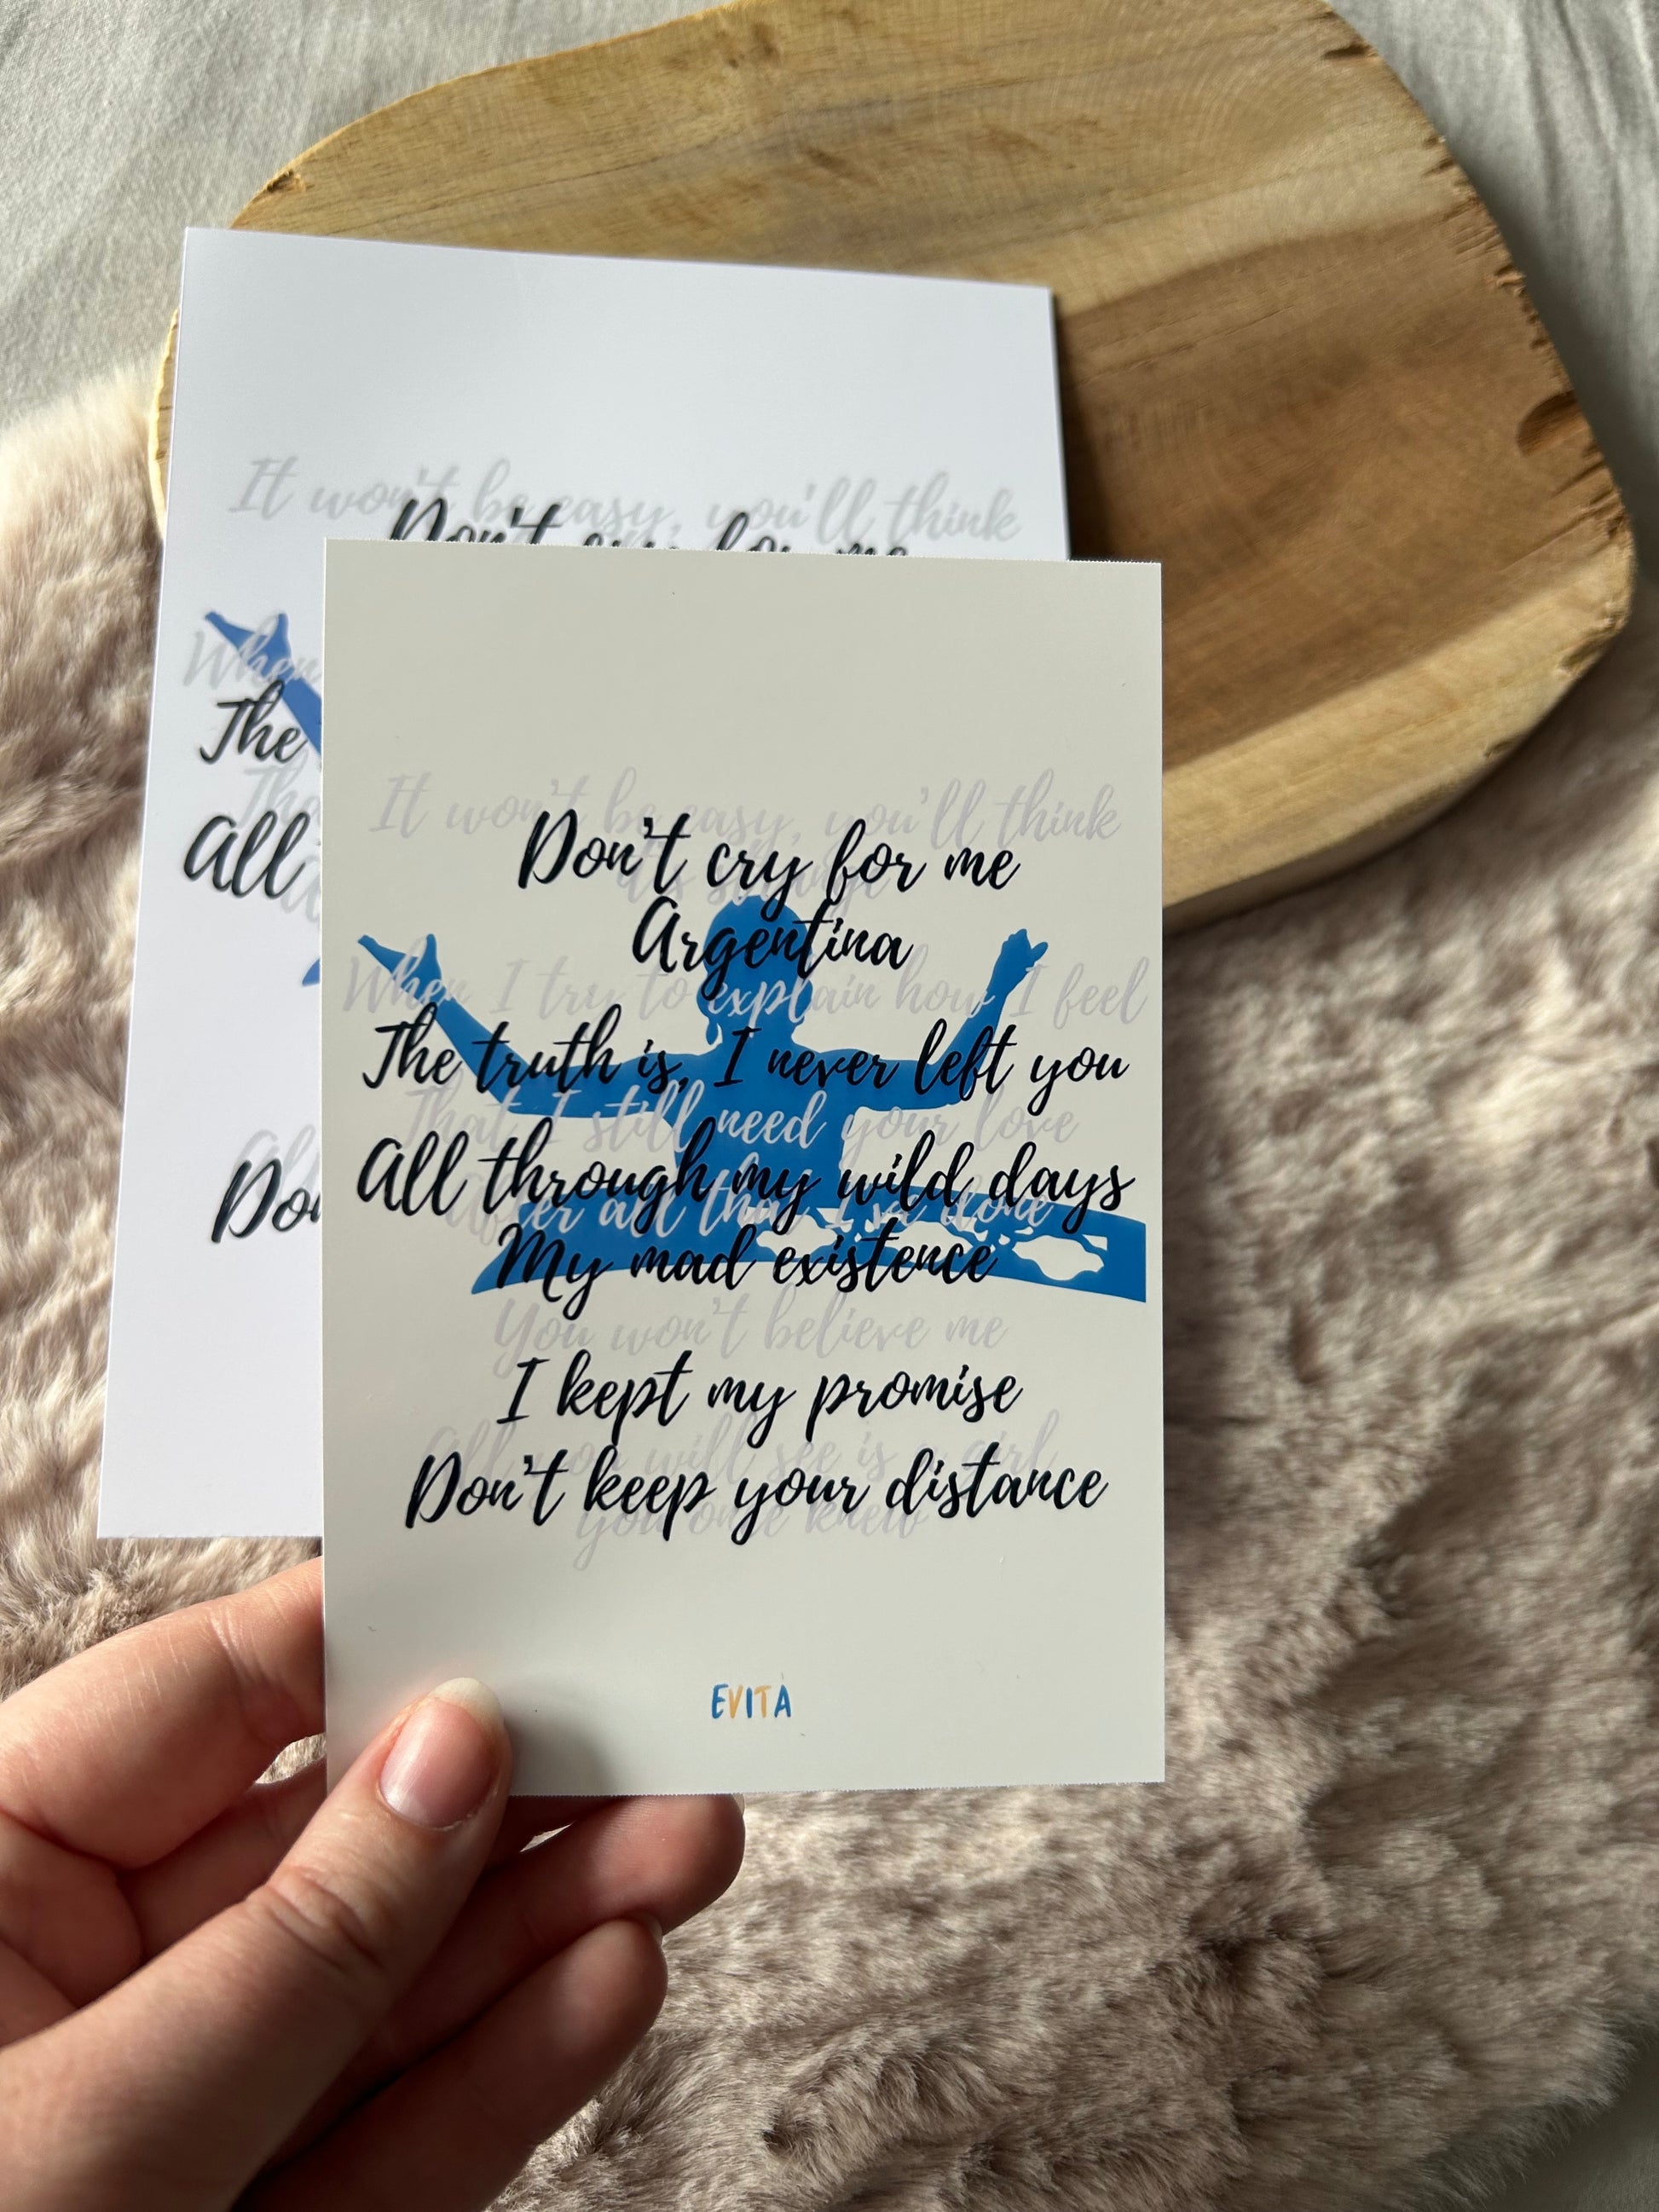 It won't be easy, you'll think
Don't cry for me
The
All
It won't be easy, you'll think
Don't cry for me
it's strange
Argentina
When I try to explain how I feel
The truth is, I never left you
That I still need your love
All through my wild days
After all that I've done
My mad existence
You won't believe me
I kept my promise
All you will see is a girl
Don't keep your distance
you once knew
EVITA